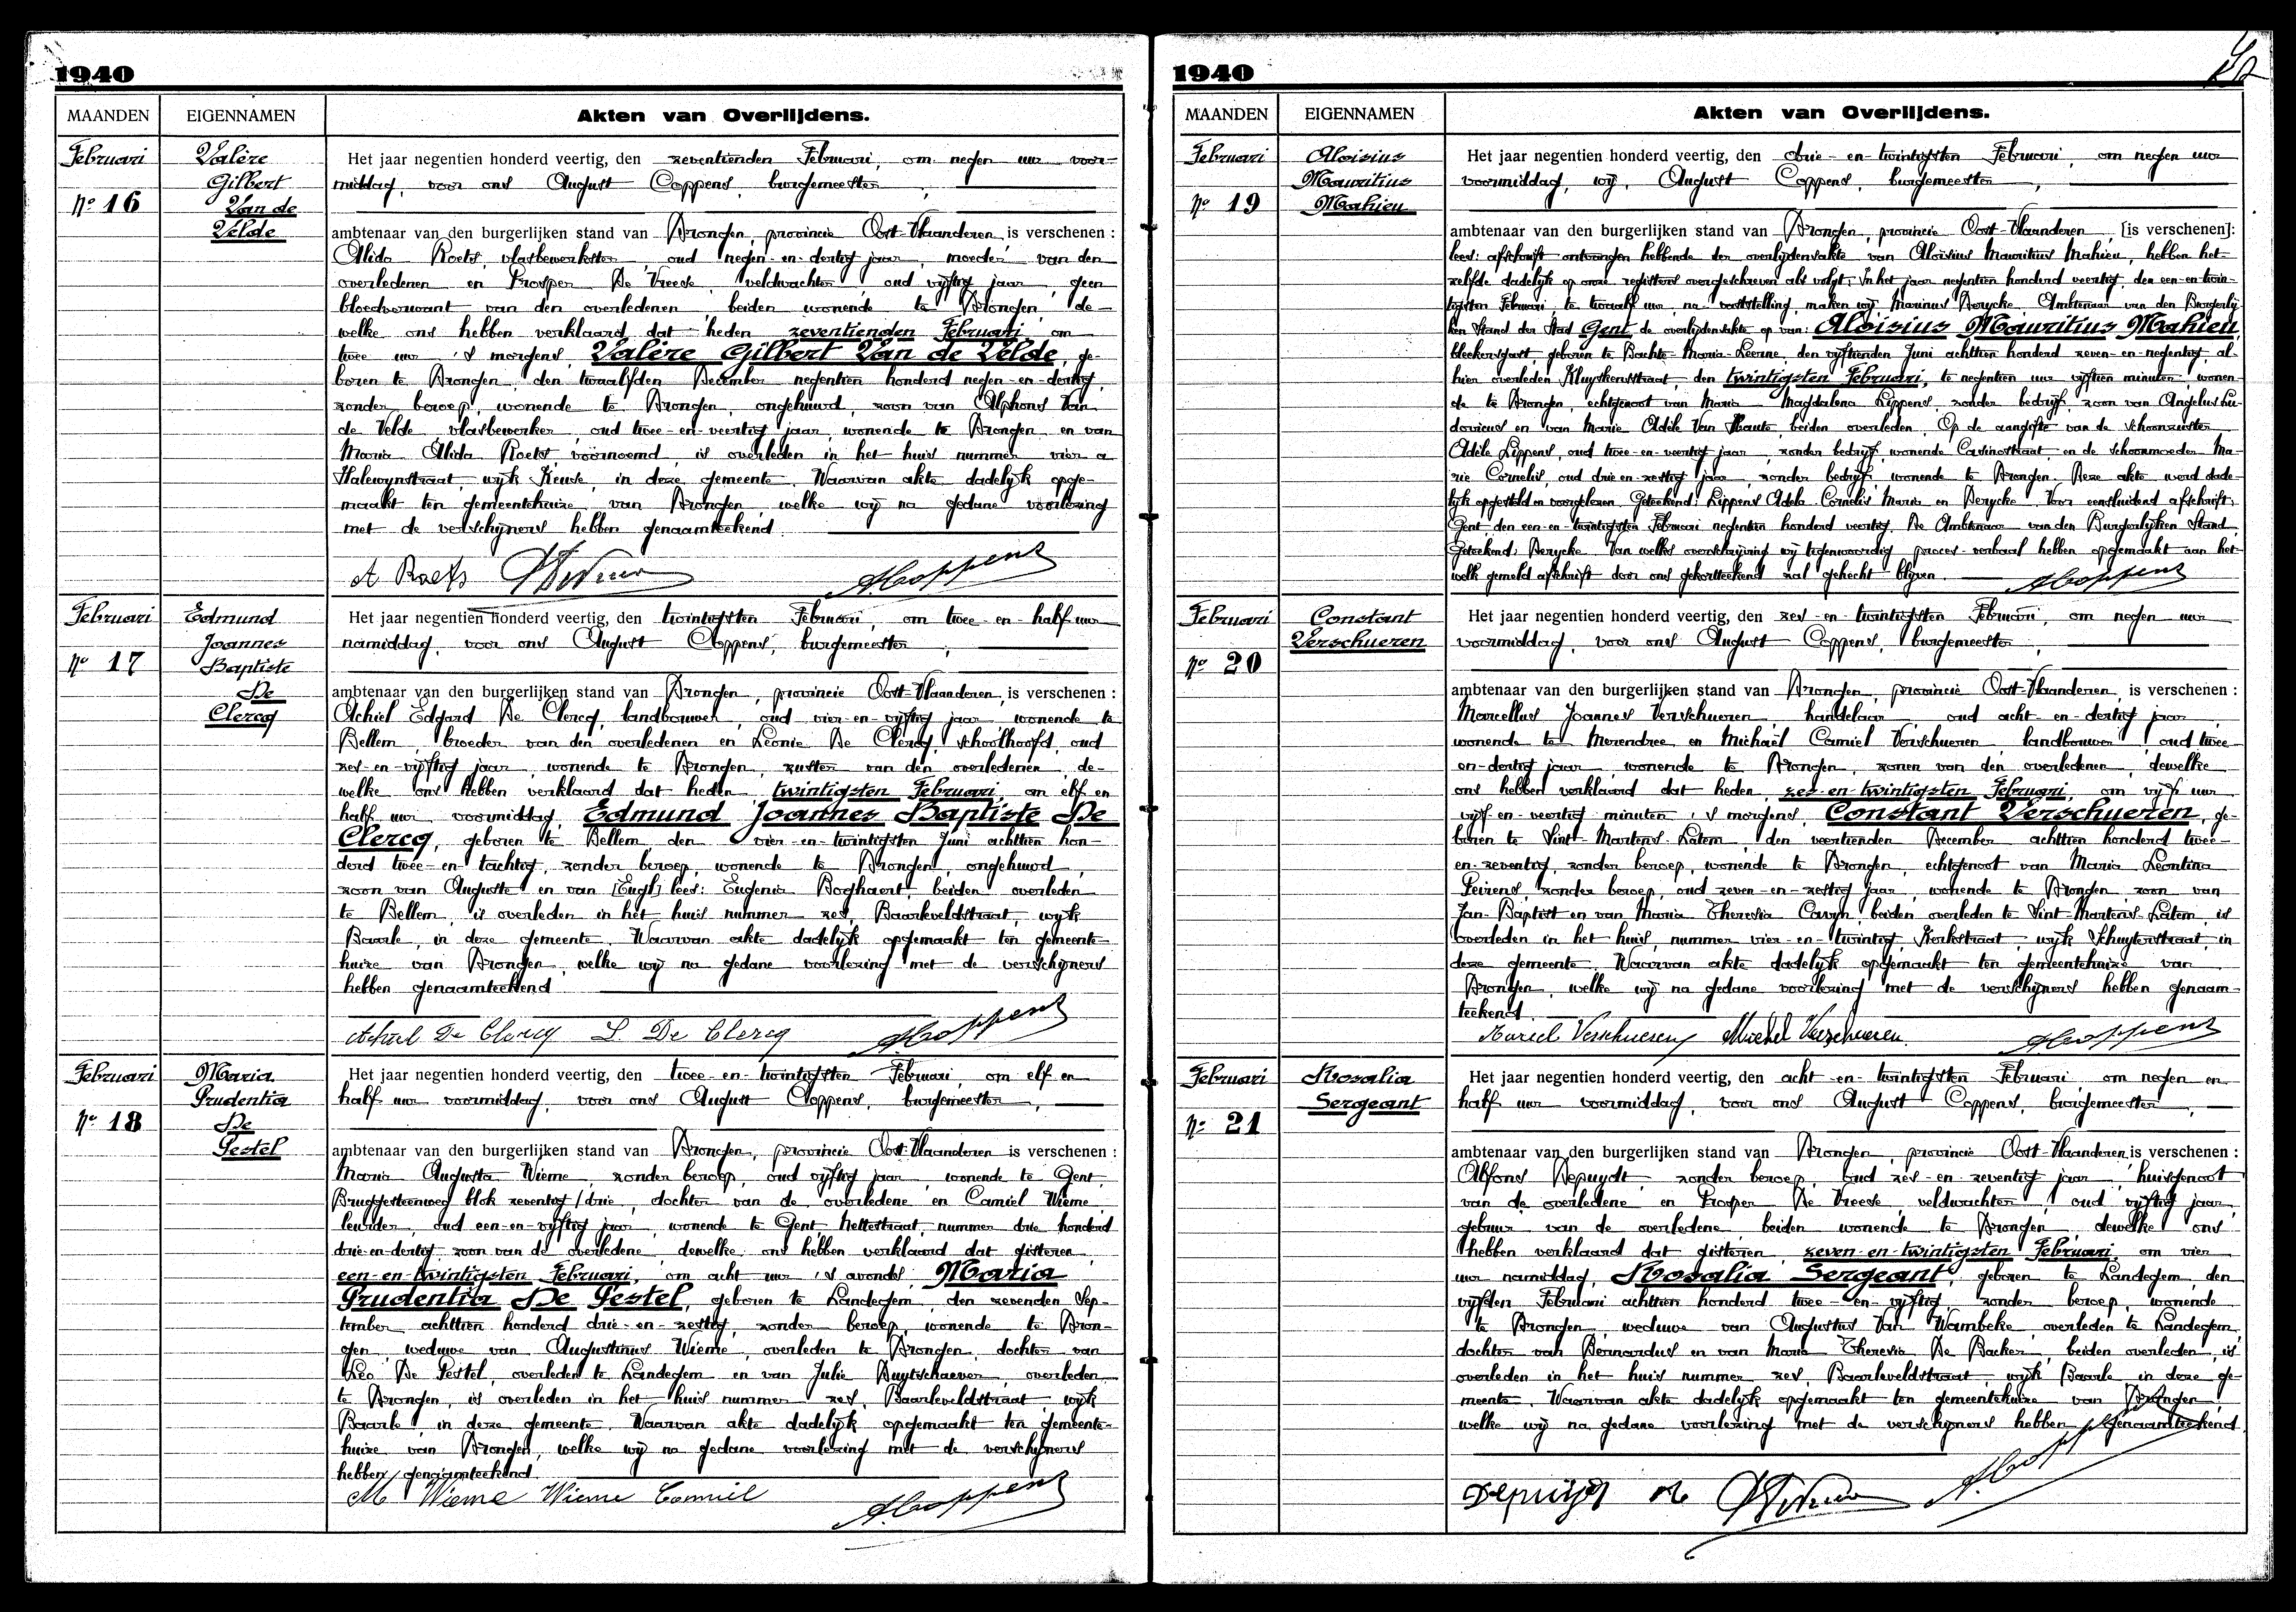 1940
MAANDEN EIGENNAMEN Akten van Overlijdens.
Februari
Nº 16
Valère
Gilbert
Van de
Velde
Het jaar negentien honderd veertig, den zeventienden Februari, om negen uur voor-
middag, voor ons August Coppens, burgemeester,
ambtenaar van den burgerlijken stand van Drongen, provincie Oost-Vlaanderen, is verschenen:
Alida Roets, vlasbewerkster, oud negen-en-dertig jaar, moeder van den
overledenen en Prosper De Vreese, veldwachter, oud vijftig jaar, geen
bloedverwant van den overledenen, beiden wonende te Drongen, de-
welke ons hebben verklaard dat heden zeventienden Februari, om
twee uur 's morgens, Valère Gilbert Van de Velde, ge-
boren te Drongen, den twaalfden December negentien honderd negen-en-dertig,
zonder beroep, wonende te Drongen, ongehuwd, zoon van Alphons Van
de Velde vlasbewerker, oud twee-en-veertig jaar, wonende te Drongen en van
Maria Alida Roets voornoemd, is overleden in het huis nummer vier a
Halewynstraat, wijk Keuse, in deze gemeente. Waarvan akte dadelijk opge-
maakt ten gemeentehuize van Drongen, welke wij na gedane voorlezing
met de verschijners hebben genaamteekend.
A Roets ACoppens
Februari
Nº 17
Edmund
Joannes
Baptiste
De
Clercq
Het jaar negentien honderd veertig, den twintigsten Februari, om twee-en-half uur
namiddag, voor ons August Coppens, burgemeester,
ambtenaar van den burgerlijken stand van Drongen, provincie Oost-Vlaanderen, is verschenen:
Achiel Edgard De Clercq, landbouwer, oud vier-en-vijftig jaar, wonende te
Bellem, broeder van den overledenen en Leonie De Clercq, schoolhoofd, oud
zes-en-vijftig jaar, wonende te Drongen, zuster van den overledenen, de-
welke ons hebben verklaard dat heden, twintigsten Februari, om elf en
half uur voormiddag, Edmund Joannes Baptiste De
Clercq, geboren te Bellem, den vier-en-twintigsten Juni achttien hon-
derd twee-en-tachtig, zonder beroep, wonende te Drongen, ongehuwd,
zoon van Auguste en van [Eugl] lees: Eugenia Boghaert, beiden overleden
te Bellem, is overleden in het huis nummer zes, Baarleveldstraat, wijk
Baarle, in deze gemeente. Waarvan akte dadelijk opgemaakt ten gemeente-
huize van Drongen, welke wij na gedane voorlezing met de verschijners
hebben genaamteekend.
Achiel De Clercq L. De Clercq ACoppens
Februari
Nº 18
Maria
Prudentia
De
Pestel
Het jaar negentien honderd veertig, den twee-en-twintigsten Februari, om elf en
half uur voormiddag, voor ons August Coppens, burgemeester,
ambtenaar van den burgerlijken stand van Drongen, provincie Oost-Vlaanderen is verschenen:
Maria Augusta Wieme, zonder beroep, oud vijftig jaar, wonende te Gent,
Brugschesteenweg blok zeventig/drie, dochter van de overledene en Camiel Wieme,
leurder, oud een-en-vijftig jaar, wonende te Gent, Mettestraat, nummer drie honderd
drie-en-dertig, zoon van de overledene, dewelke ons hebben verklaard dat gisteren
een-en-twintigsten Februari, om acht uur 's avonds, Maria
Prudentia De Pestel, geboren te Landegem, den zevenden Sep-
tember achttien honderd drie-en-zestig, zonder beroep, wonende te Dron-
gen, weduwe van Augustinus Wieme, overleden te Drongen, dochter van
Leo De Pestel, overleden te Landegem en van Julie Duytschaever, overleden
te Drongen, is overleden in het huis nummer zes, Baarleveldstraat, wijk
Baarle, in deze gemeente. Waarvan akte dadelijk opgemaakt ten gemeente-
huize van Drongen, welke wij na gedane voorlezing met de verschijners
hebben genaamteekend.
M Wieme Wieme Camiel ACoppens
1940
MAANDEN EIGENNAMEN Akten van Overlijdens.
Februari
Nº 19
Aloisius
Mauritius
Mahieu
Het jaar negentien honderd veertig, den drie-en-twintigsten Februari, om negen uur
voormiddag, wij, August Coppens, burgemeester,
ambtenaar van den burgerlijken stand van Drongen, provincie Oost-Vlaanderen, [is verschenen]:
lees: afschrift ontvangen hebbende der overlijdensakte van Aloïsius Mauritius Mahieu, hebben het
zelfde dadelijk op onze registers overgeschreven als volgt: In het jaar negentien honderd veertig, den een-en-twin-
tigsten Februari, te twaalf uur, na vaststelling, maken wij Marinus Derycke, Ambtenaar van den Burgerlij-
ken Stand der Stad Gent de overlijdensakte op van: Aloisius Mauritius Mahieu,
bleekersgast, geboren te Bachte-Maria-Leerne, den vijftienden Juni achttien honderd zeven-en-negentig, al-
hier overleden Kluyskensstraat, den twintigsten Februari, te negentien uur vijftien minuten, wonen-
de te Drongen, echtgenoot van Maria Magdalena Lippens, zonder bedrijf, zoon van Angelus Lu-
dovicus en van Marie Adèle Van Haute, beiden overleden. Op de aangifte van de schoonzuster
Adèle Lippens, oud twee-en-veertig jaar, zonder bedrijf, wonende Casinostraat, en de schoonmoeder Ma-
rie Cornelis, oud drie-en-zestig jaar, zonder bedrijf, wonende te Drongen. Deze akte werd dade-
lijk opgesteld en voorgelezen. Geteekend: Lippens Adela, Cornelis Maria en Derycke. Voor eensluidend afschrift,
Gent, den een-en-twintigsten Februari negentien honderd veertig, De Ambtenaar van den Burgerlijken Stand,
Geteekend: Derycke. Van welke overschrijving wij tegenwoordig proces-verbaal hebben opgemaakt aan het-
welk gemeld afschrift door ons gekortteekend zal gehecht blijven. ACoppens
Februari
Nº 20
Constant
Verschueren
Het jaar negentien honderd veertig, den zes-en-twintigsten Februari, om negen uur
voormiddag, voor ons August Coppens, burgemeester,
ambtenaar van den burgerlijken stand van Drongen, provincie Oost-Vlaanderen, is verschenen:
Marcellus Joannes Verschueren, handelaar, oud acht-en-dertig jaar,
wonende te Merendree en Michaël Camiel Verschueren, landbouwer, oud twee
en-dertig jaar, wonende te Drongen, zonen van den overledenen, dewelke
ons hebben verklaard dat heden, zes-en-twintigsten Februari, om vijf uur
vijf-en-veertig minuten 's morgens, Constant Verschueren, ge-
boren te Sint-Martens-Latem, den veertienden December achttien honderd twee-
en-zeventig, zonder beroep, wonende te Drongen, echtgenoot van Maria Leontina
Peirens, zonder beroep, oud zeven-en-zestig jaar, wonende te Drongen, zoon van
Jan-Baptist en van Maria Theresia Caryn, beiden overleden te Sint-Martens-Latem, is
overleden in het huis, nummer vier-en-twintig, Kerkstraat, wijk Schuyterstraat, in
deze gemeente. Waarvan akte dadelijk opgemaakt ten gemeentehuize van
Drongen, welke wij na gedane voorlezing met de verschijners hebben genaam-
teekend.
Marcel Verschueren Michel Verschueren. ACoppens
Februari
Nº 21
Rosalia
Sergeant
Het jaar negentien honderd veertig, den acht-en-twintigsten Februari, om negen en
half uur voormiddag, voor ons August Coppens, burgemeester,
ambtenaar van den burgerlijken stand van Drongen, provincie Oost-Vlaanderen, is verschenen:
Alfons Depuydt, zonder beroep, oud zes-en-zeventig jaar, huisgenoot
van de overledene en Prosper De Vreese, veldwachter, oud vijftig jaar,
gebuur van de overledene, beiden wonende te Drongen, dewelke ons
hebben verklaard dat gisteren, zeven-en-twintigsten Februari, om vier
uur namiddag, Rosalia Sergeant, geboren te Landegem, den
vijfden Februari achttien honderd twee-en-vijftig, zonder beroep, wonende
te Drongen, weduwe van Augustus Van Wambeke, overleden te Landegem,
dochter van Bernardus en van Maria Theresia De Backer, beiden overleden, is
overleden in het huis nummer zes, Baarleveldstraat, wijk Baarle in deze ge-
meente. Waarvan akte dadelijk opgemaakt ten gemeentehuize van Drongen,
welke wij na gedane voorlezing met de verschijners hebben genaamteekend.
ACoppens